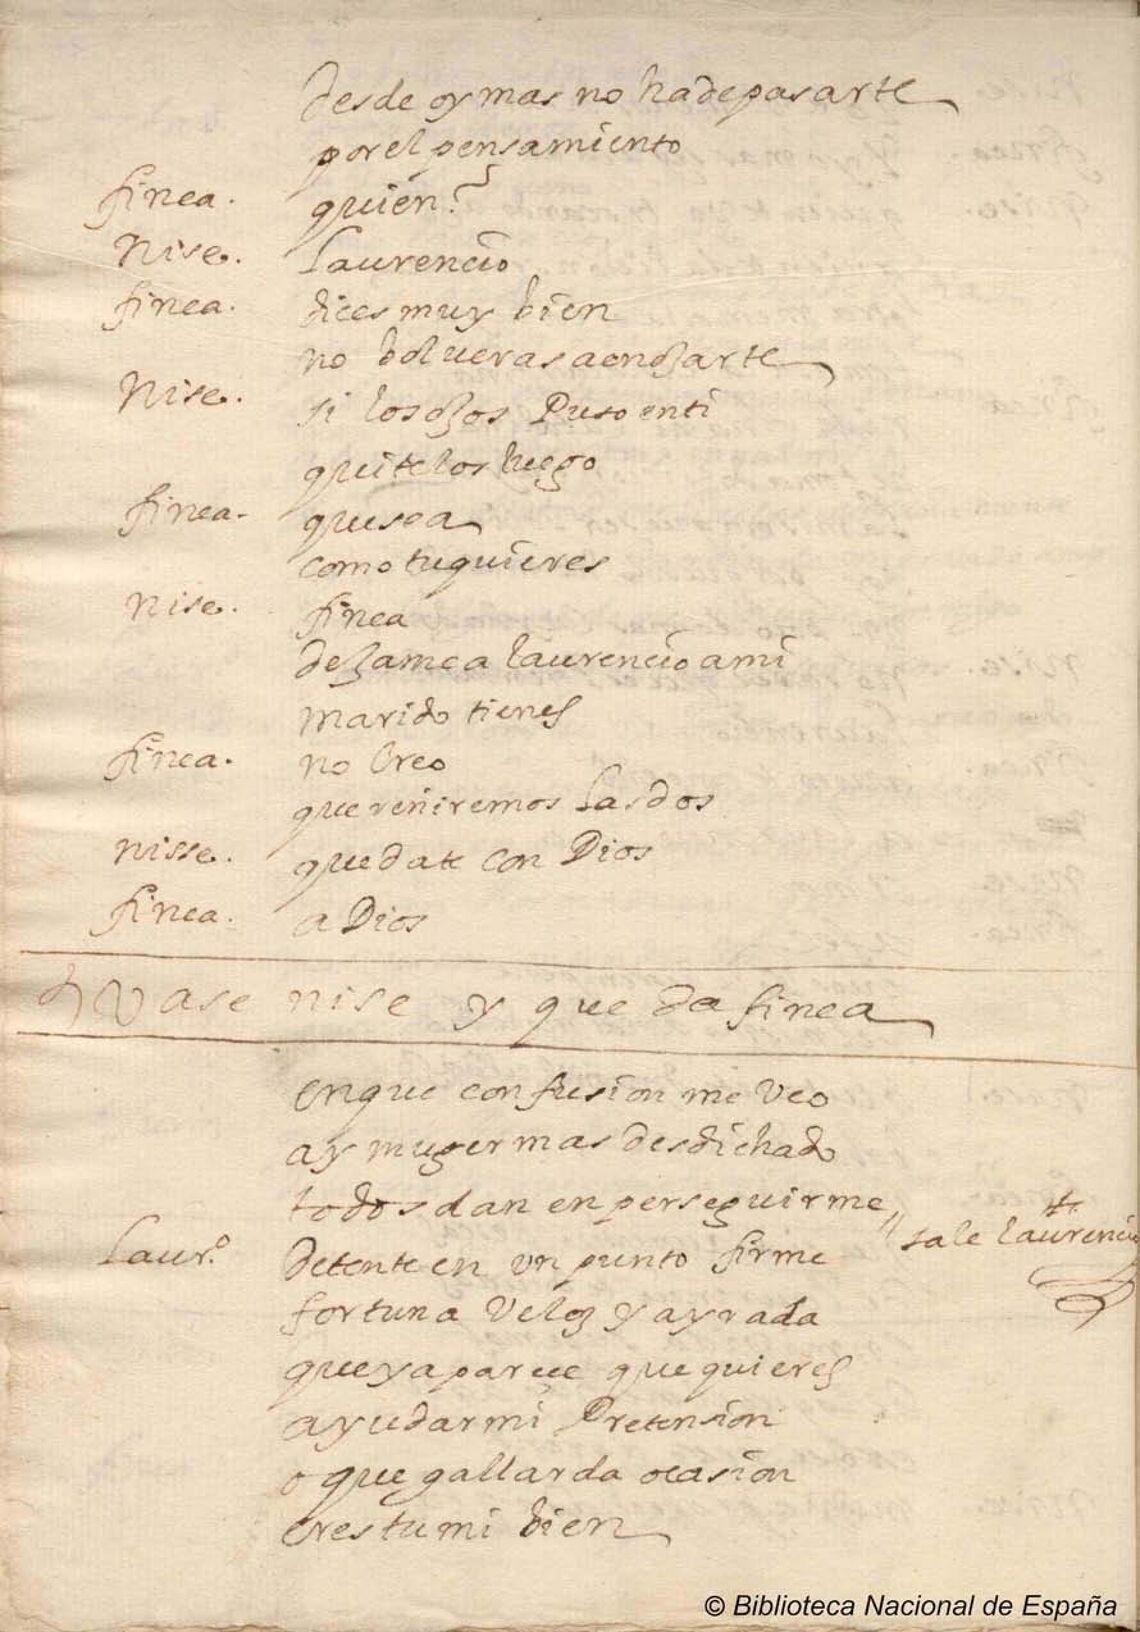 desde oy mas no hadepasarte
por el pensamiento
finea. quien?
Nise. Laurencio
finea. dices muy bien
no bolueras aenoJarte
Nise. si los oJos Puso enti
quitelos luego
finea. quesea
como tuquieres
nise. finea
deJamea laurencio ami
marido tienes
finea. no Creo
que reñiremos Las dos
nisse. quedate con Dios
finea. a Dios
Vase nise y queda finea
enque confusion me Veo
ay muger mas desdichado
todos dan en perseguirme
sale laurencio
Laur.o detente en un punto firme
fortuna Veloz y ayrada
que ya parece que quieres
ayudar mi Pretension
o que gallarda ocasion
eres tu mi bien
© Biblioteca Nacional de España